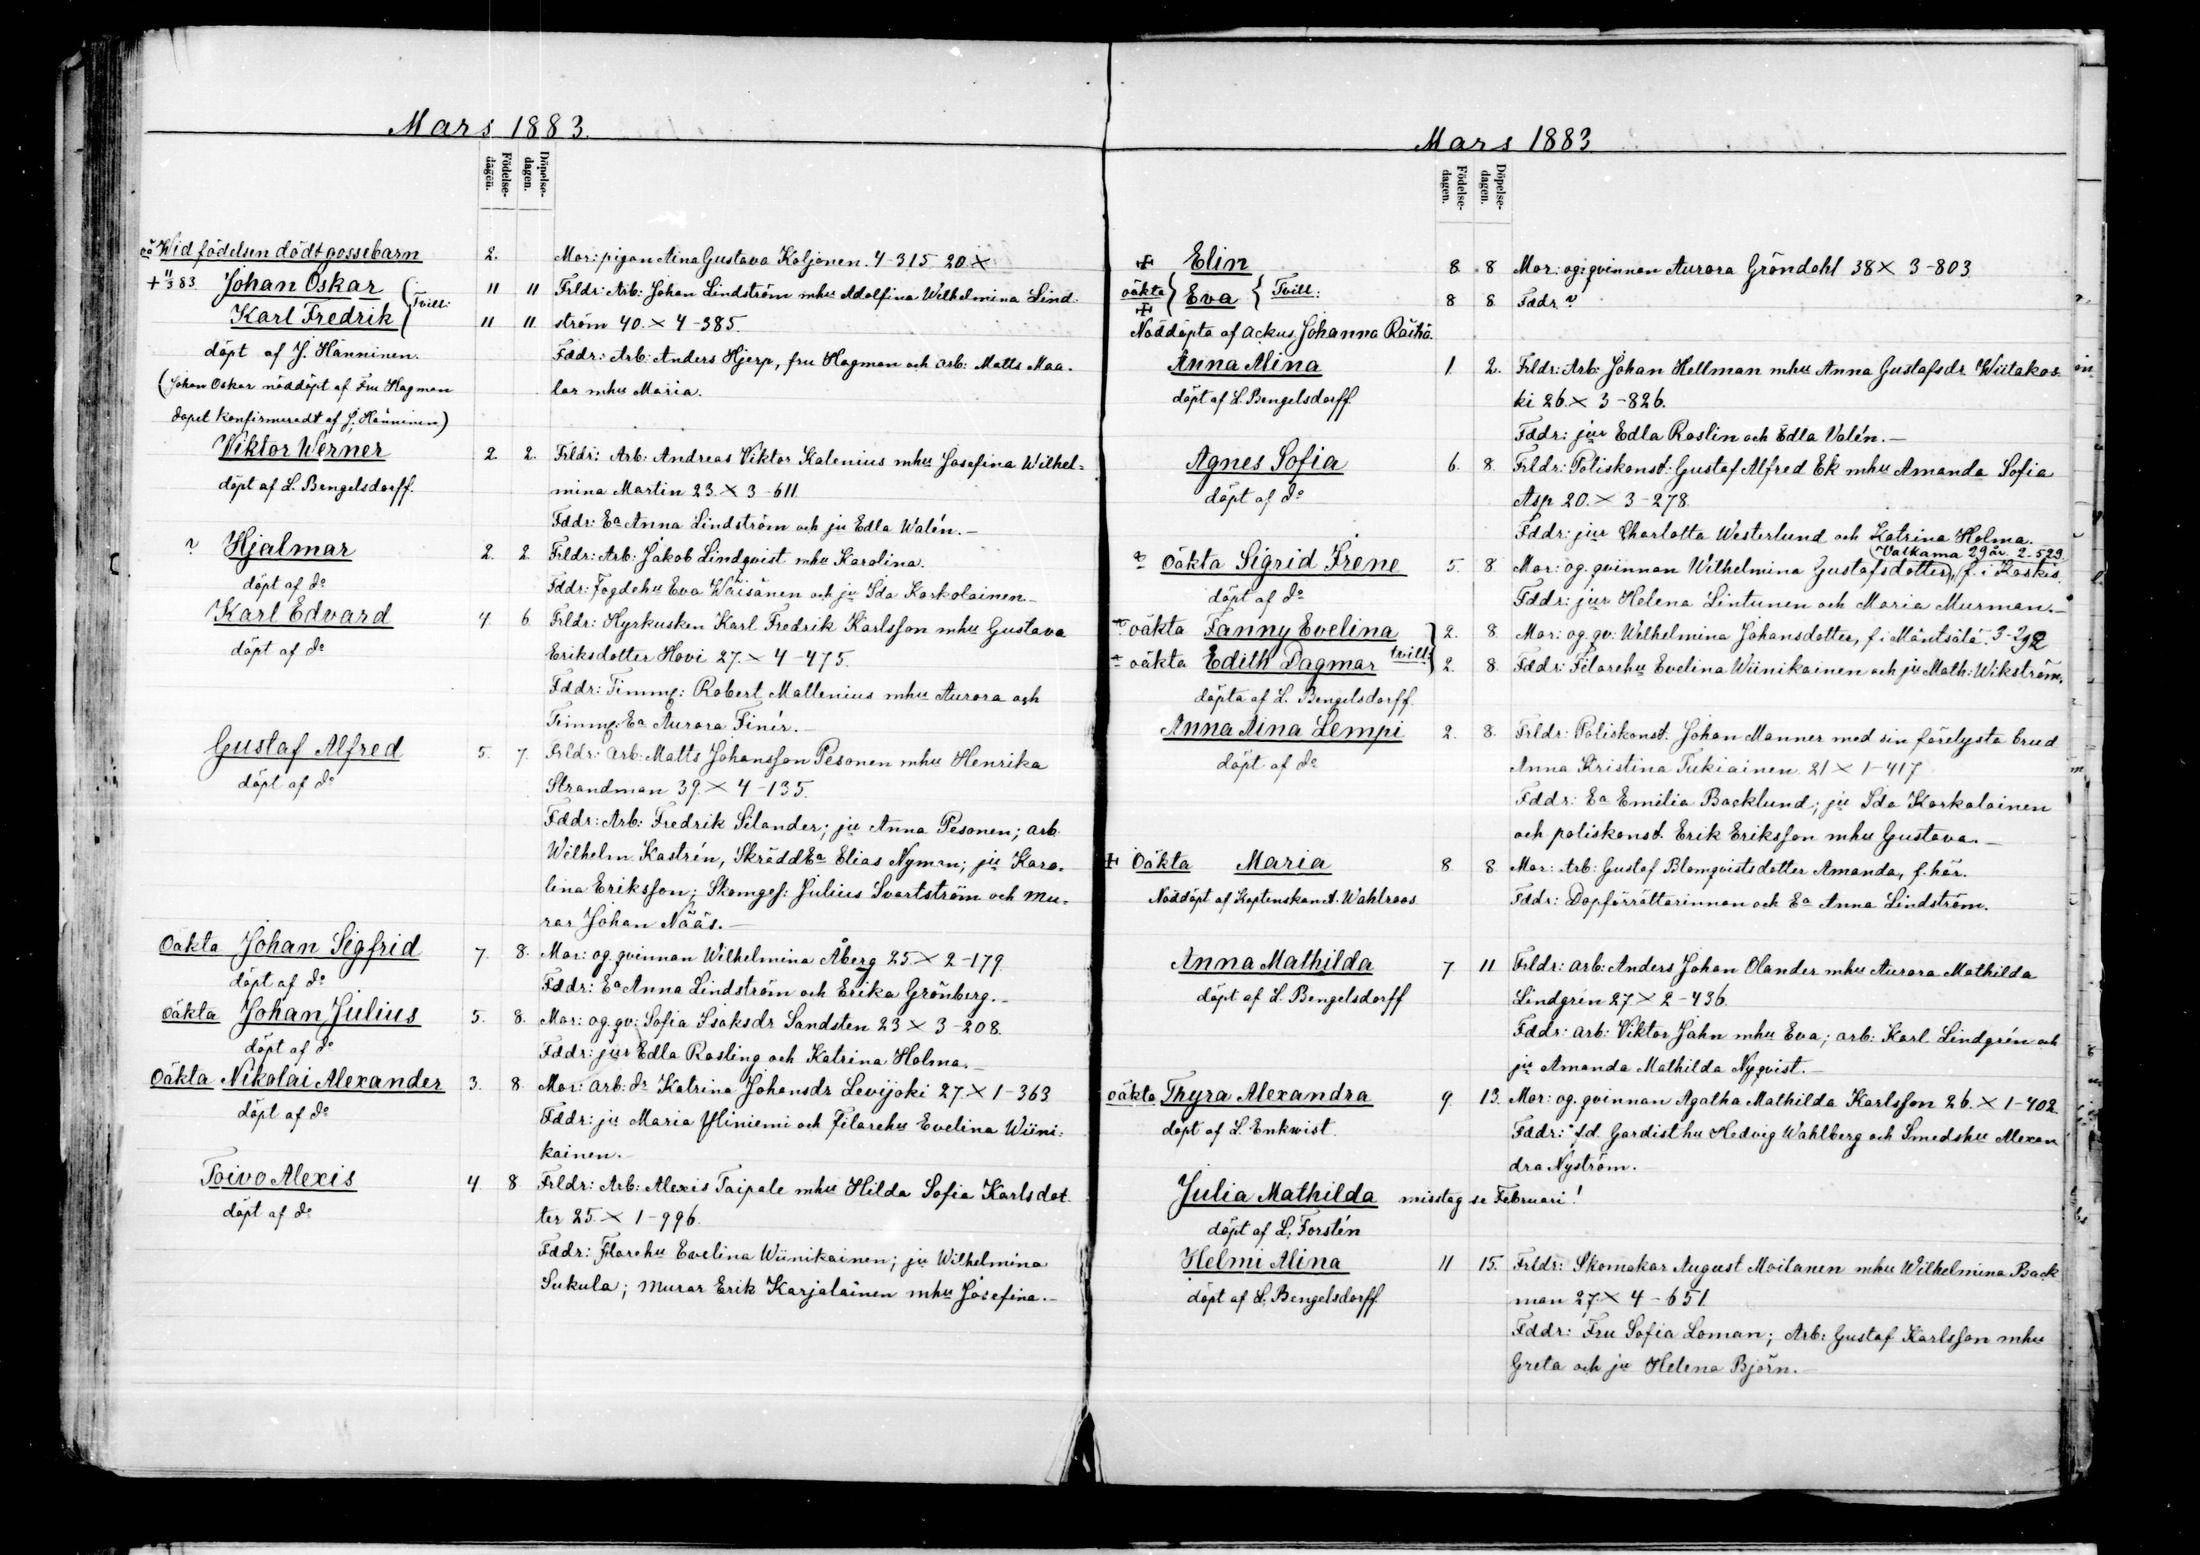 Mars 1883.
Födelse-
dagen.
Döpelse-
dagen.
oä Wid födelsen dödt gossebarn 2. Mor: pigan Aina Gustava Koljonen. 4-315 20.×
+ 11/3 83. Johan Oskar 11 11 Frldr: Arb: Johan Lindström mhu Adolfina Wilhelmina Lind-
Tvill:
Karl Fredrik 11 11 ström 40.× 4-385.
döpt af J. Hänninen. Fddr: Arb: Anders Hjerp, fru Hagman och arb: Matts Maa-
(Johan Oskar nöddöpt af Fru Hagman lar mhu Maria.
dopet konfirmeradt af J. Hänninen)
Viktor Werner 2. 2. Frldr: Arb: Andreas Viktor Kalenius mhu Josefina Wilhel-
döpt af L. Bengelsdorff. mina Martin 23.× 3-611.
Fddr: Ea Anna Lindström och ju Edla Walén.-
Hjalmar 2. 2. Frldr: Arb: Jakob Lindqvist mhu Karolina.
döpt af do Fddr: Fogdehu Eva Wäisänen och ju Ida Karkolainen-
Karl Edvard 4 6. Frldr: Hyrkusken Karl Fredrik Karlsson mhu Gustava
döpt af do Eriksdotter Hovi 27.× 4-475.
Fddr: Timmg: Robert Mallenius mhu Aurora och
Timmg: Ea Aurora Finér.-
Gustaf Alfred 5. 7. Frldr: Arb: Matts Johansson Pesonen mhu Henrika
döpt af do Strandman 39.× 4-135.
Fddr: Arb: Fredrik Silander; ju Anna Pesonen; arb.
Wilhelm Kastrén, SkräddEa Elias Nyman; ju Karo-
lina Eriksson; Skomges: Julius Svartström och mu-
rar Johan Nääs.-
Oäkta Johan Sigfrid 7. 8. Mor: og. qvinnan Wilhelmina Åberg 25.× 2-179.
döpt af do Fddr: Ea Anna Lindström och Erika Grönberg.-
Oäkta Johan Julius 5. 8. Mor: og. qv: Sofia Isaksdr Sandsten 23 × 3-208.
döpt af do Fddr: jur Edla Rosling och Katrina Holma.-
Oäkta Nikolai Alexander 3. 8. Mor: Arb: dr Katrina Johansdr Levijoki 27.× 1-363
döpt af do Fddr: ju Maria Yliniemi och Filarehu Evelina Wiini-
kainen.-
Toivo Alexis 4. 8 Frldr: Arb: Alexis Taipale mhu Hilda Sofia Karlsdot-
döpt af do ter 25.× 1-996.
Fddr: Filarehu Evelina Wiinikainen; ju Wilhelmina
Sukula; Murar Erik Karjalainen mhu Josefina.-
Mars 1883.
Födelse-
dagen.
Döpelse-
dagen.
Elin 8. 8 Mor: og: qvinnan Aurora Gröndahl 38× 3-803
oäkta Eva Tvill: 8 8. Fddr
Nöddöpta af ackus. Johanna Räihä.
Anna Alina 1. 2. Frldr: Arb: Johan Hellman mhu Anna Gustafsdr Wiitakos-
döpt af L. Bengelsdorff. ki 26.× 3-826.
Fddr: jur Edla Roslin och Edla Valén.-
Agnes Sofia 6. 8. Frldr: Poliskonst: Gustaf Alfred Ek mhu Amanda Sofia
döpt af do Asp 20.× 3-278.
Fddr: jur Charlotta Westerlund och Katrina Holma.
Valkama 29 år. 2-529.
Oäkta Sigrid Irene 5. 8. Mor: og. qvinnan Wilhelmina Gustafsdotter, f. i Koskis.
döpt af do Fddr: jur Helena Lintunen och Maria Murman.-
oäkta Fanny Evelina 2. 8. Mor: og. qv: Wilhelmina Johansdotter, f. i Mäntsälä. 3-392
oäkta Edith Dagmar tvill: 2. 8. Fddr: Filarehu Evelina Wiinikainen och ju Math: Wikström.
döpta af L. Bengelsdorff.
Anna Aina Lempi 2. 8. Frldr: Poliskonst. Johan Manner med sin förelysta brud
döpt af do Anna Kristina Tukiainen 21× 1-417
Fddr: Ea Emilia Backlund; ju Ida Karkolainen
och poliskonst. Erik Eriksson mhu Gustava.-
Oäkta Maria 8. 8. Mor: Arb: Gustaf Blomqvists dotter Amanda, f. här.
Nöddöpt af Kaptenskan A. Wahlroos Fddr: Dopförrättarinnan och Ea Anna Lindström.
Anna Mathilda 7 11 Frldr: Arb: Anders Johan Olander mhu Aurora Mathilda
döpt af L. Bengelsdorff Lindgrén 27.× 2-436.
Fddr: arb: Viktor Jahn mhu Eva; arb: Karl Lindgrén och
ju Amanda Mathilda Nyqvist.-
oäkta Thyra Alexandra 9. 13. Mor: og. qvinnan Agatha Mathilda Karlsson 26.× 1-402.
döpt af L. Enkwist. Fddr: fd. Gardisthu Hedvig Wahlberg och Smedshu Alexan
dra Nyström.-
Julia Mathilda misstag se Februari!
döpt af L. Forstén
Helmi Alina 11 15. Frldr: Skomakar August Moilanen mhu Wilhelmina Back
döpt af L. Bengelsdorff. man 27.× 4-651.
Fddr: Fru Sofia Loman; Arb: Gustaf Karlsson mhu
Greta och ju Helena Björn.-